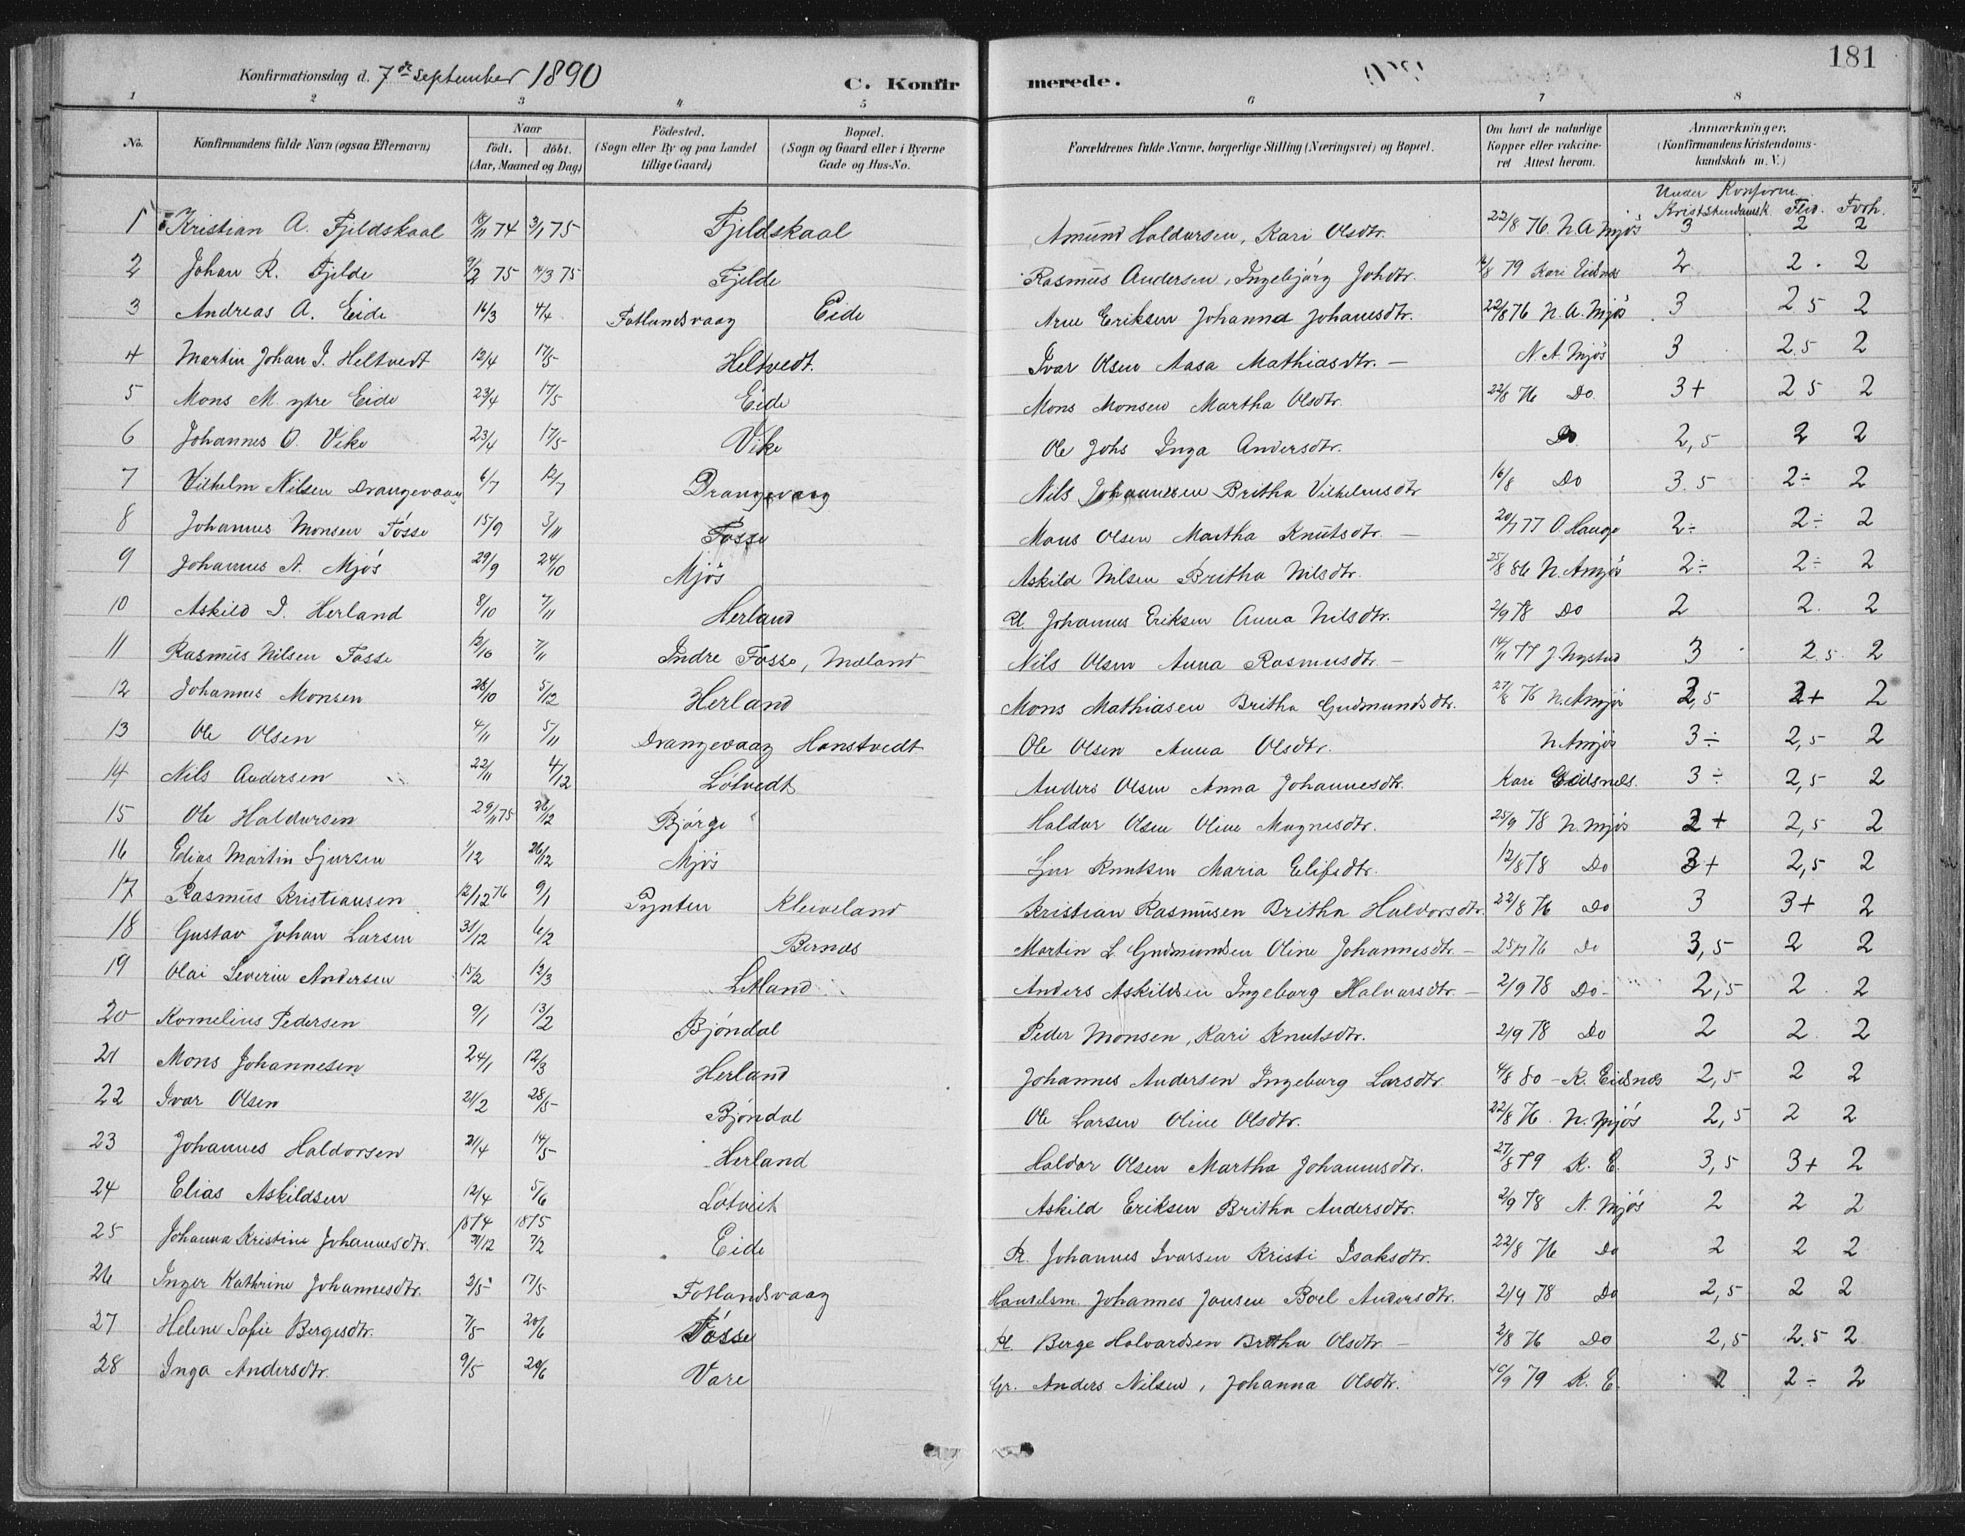 Konfirmationsdag d. 7de September 1890 C. Konfir merede. 181
1 2 3 4 5 6 7 8
No. Konfirmandens fulde Navn (ogsaa Efternavn) Naar født. døbt. (Aar, Maaned og Dag) Fødested. (Sogn eller By og paa Landet tillige Gaard) Bopæl. (Sogn og Gaard eller i Byerne Gade og Hus-No. Forældrenes fulde Navne, borgerlige Stilling (Næringsvei) og Bopæl. Om havt de naturlige Kopper eller vakcineret Attest herom. Anmærkninger. (Konfirmandens Kristendomskundskab m. V.)
Under Konform.
Flid. Forh.
1 Kristian A. Fjeldskaal 18/11 74 3/1 75 Fjeldskaal Amund Haldorsen, Kari Olsdtr. 22/8 76 N. A. Mjøs 3 2 2
2 Johan R. Fjelde 9/2 75 14/3 75 Fjelde Rasmus Andersen, Ingebjørg Johdtr. 16/8 79 Kari Eidsnes 2 2. 2
3 Andreas A. Eide 16/3 4/4 Fotlandsvaag Eide Arne Eriksen Johanna Johanesdtr. 22/8 76 N. A. Mjøs 3 2 5 2
4 Martin Johan I. Heltvedt 12/4 17/5 Heltvedt. Ivar Olsen Aasa Mathiasdtr. — N A Mjøs 3 2.5 2
5 Mons M. ytre Eide 23/4 17/5 Eide Mons Monsen Martha Olsdtr. 22/8 76 Do 3+ 2 5 2
6 Johannes O. Vike 23/4 17/5 Vike Ole Johs Inga Andersdtr. Do 2,5 2 2
7 Vilhelm Nilsen Drangevaag 6/7 12/7 Drangevaag Nils Johannesen Britha Vilhelmsdtr 16/8 Do 3.5 2÷ 2
8 Johannes Monsen Fosse 15/9 3/11 Fosse Mons Olsen Martha Knutsdtr. — 20/7 77 O Hauge 2÷ 2÷ 2
9 Johannes A. Mjøs 29/9 24/10 Mjøs Askild Nilsen Britha Nilsdtr. 25/8 86 N. A Mjøs 2÷ 2÷ 2
10 Askild J. Herland 8/10 7/11 Herland Pl. Johannes Eriksen Anna Nilsdtr. 2/9 78 Do 2 2. 2
11 Rasmus Nilsen Fosse 12/10 7/11 Indre Fosse, Mæland Nils Olsen Anna Rasmusdtr — 14/11 77 J Nystad 3 2.5 2
12 Johannes Monsen 28/10 5/12 Herland Mons Mathiasen Britha Gudmundsdtr. 27/8 76 N. A Mjøs 2,5 2+ 2
13 Ole Olsen 4/11 5/11 Drangevaag Hanstvedt Ole Olsen Anna Olsdtr. N A Mjøs 3÷ 2,5 2
14 Nils Andersen 22/11 4/12 Løtvedt Anders Olsen Anna Johannesdtr. Kari Eidsnes. 3÷ 2,5 2
15 Ole Haldorsen 29/11 75 26/12 Bjørge Haldor Olsen Oline Magnesdtr. 25/9 78 N. Mjøs 2+ 2,5 2
16 Elias Martin Sjursen 1/12 26/12 Mjøs Sjur Knutsen Maria Elifsdtr. 12/8 78 Do 3+ 2,5 2
17 Rasmus Kristiansen 12/12 76 9/1 Pynten Kleiveland Kristian Rasmusen Britha Haldorsdtr. 22/8 76 Do 3 3+ 2
18 Gustav Johan Larsen 31/12 6/2 Bernes Martin L. Gudmundsen Oline Johannesdtr. — 25/7 76 Do 3,5 2 2
19 Olai Severin Andersen 15/2 12/3 Litland Anders Askildsen Ingeborg Halvorsdtr — 2/9 78 Do 2,5 2 2
20 Kornelius Pedersen 9/1 13/2 Bjøndal Peder Monsen, Kari Knutsdtr. 2/9 78 Do 2 2 2
21 Mons Johannesen 24/1 12/3 Herland Johannes Andersen Ingeborg Larsdtr 4/8 80 - K. Eidsnes 2,5 2 2
22 Ivar Olsen 21/2 28/5 Bjøndal Ole Larsen Oline Olsdtr. 22/8 76. N. Mjøs 2,5 2 2
23 Johannes Haldorsen 21/4 14/5 Herland Haldor Olsen Martha Johannesdtr. 27/8 79 K. E. 3,5 3+ 2
24 Elias Askildsen 12/4 5/6 Løtveit Askild Eriksen Britha Andersdtr. 2/9 78 N. Mjøs 2 2 2
1874 1875
25 Johanna Kristine Johannesdtr. 31/12 7/2 Eide Pl. Johannes Ivarsen Kristi Isaksdtr. 22/8 76 Do 2 2 2
26 Inger Kathrine Johannesdtr. 2/5 17/5 Fotlandsvaag Handelsm. Johannes Jansen Boel Andersdtr. 2/9 78 Do 2,5 2 2
27 Helene Sofie Bergesdtr. 7/5 20/6 Fosse Pl. Berge Halvardsen Britha Olsdtr. — 2/8 76 Do 2,5 2.5 2
28 Inga Andersdtr. 9/5 20/6 Vare Gr. Anders Nilsen, Johanna Olsdtr. 10/9 79 K. E. 2 2÷ 2